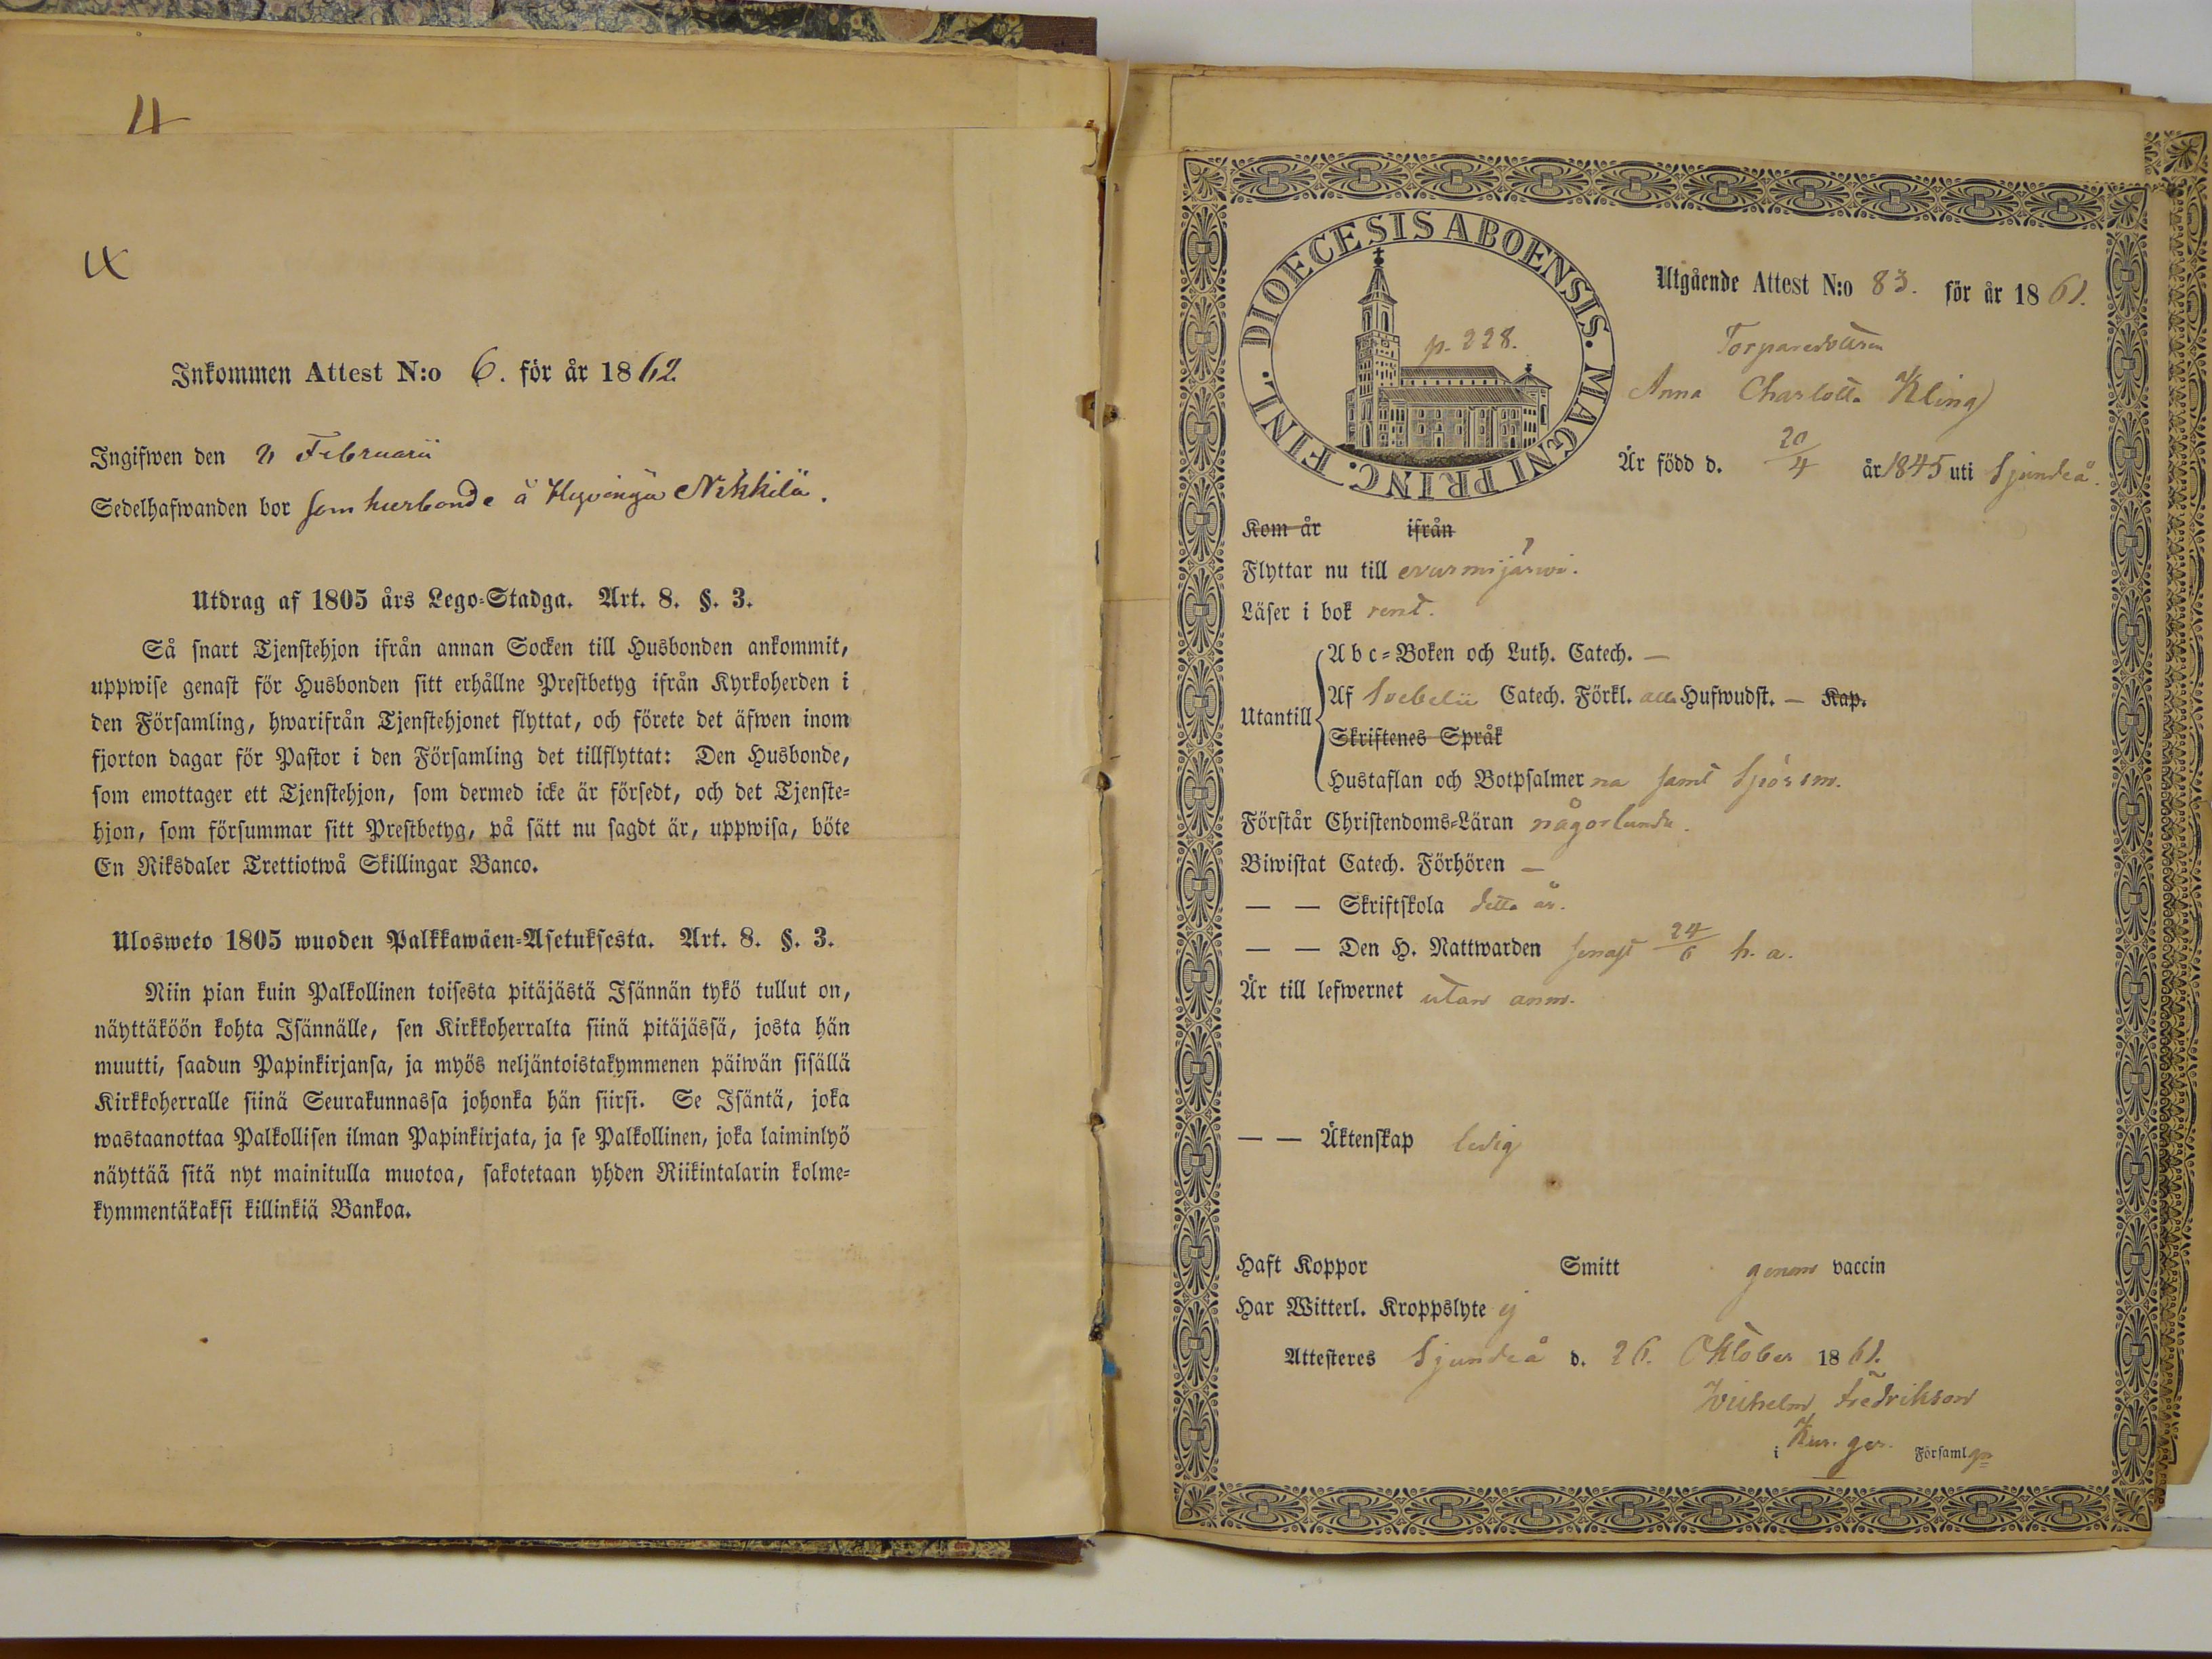 4
Inkommen Attest N:o 6. för år 1862
Ingifwen den 2 Februarii
Sedelhafwanden bor som husbonde å Hyvinge Nikkilä.
Utdrag af 1805 års Lego-Stadga. Art. 8. §. 3.
Så snart Tjenstehjon ifrån annan Socken till Husbonden ankommit,
uppwise genast för Husbonden sitt erhållne Prestbetyg ifrån Kyrkoherden i
den Församling, hwarifrån Tjenstehjonet flyttat, och förete det äfwen inom
fjorton dagar för Pastor i den Församling det tillflyttat: Den Husbonde,
som emottager ett Tjenstehjon, som dermed icke är försedt, och det Tjenste-
hjon, som försummar sitt Prestbetyg, på sätt nu sagdt är, uppwisa, böte
En Riksdaler Trettiotwå Skillingar Banco.
Ulosweto 1805 wuoden Palkkawäen-Asetuksesta. Art. 8. §. 3.
Niin pian kuin Palkollinen toisesta pitäjästä Isännän tykö tullut on,
näyttäköön kohta Isännälle, sen Kirkkoherralta siinä pitäjässä, josta hän
muutti, saadun Papinkirjansa, ja myös neljäntoistakymmenen päiwän sisällä
Kirkkoherralle siinä Seurakunnassa johonka hän siirsi. Se Isäntä, joka
wastaanottaa Palkollisen ilman Papinkirjata, ja se Palkollinen, joka laiminlyö
näyttää sitä nyt mainitulla muotoa, sakotetaan yhden Riikintalarin kolme-
kymmentäkaksi killinkiä Bankoa.
DIOECESIS ABOENSIS. MAGNI PRINC. FINL.
p. 228.
Utgående Attest N:o 83. för år 1861.
Torparedottren
Anna Charlotta Kling
Är född d. 20/4 år 1845 uti Sjundeå.
Kom år ifrån
Flyttar nu till Nurmijärwi.
Läser i bok rent.
Utantill
A b c-Boken och Luth. Catech. —
Af Svebelii Catech. Förkl. alla Hufwudst. — Kap.
Skriftenes Språk
Hustaflan och Botpsalmerna samt Spörsm.
Förstår Christendoms-Läran någorlunda.
Biwistat Catech. Förhören —
— — Skriftskola detta år.
— — Den H. Nattwarden senast 24/6 h. a.
Är till lefwernet utan anm.
— — Äktenskap ledig
Haft Koppor Smitt genom vaccin
Har Witterl. Kroppslyte ej
Attesteres Sjundeå d. 26. Oktober 1861.
Wilhelm Fredrikson
i Församlgn